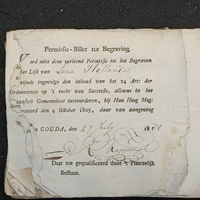 Permissie-Billet tot Begraving.
Word mits deze verleend Permissie tot het Begraven
het Lijk van Lena Hollander
mids ingevolge den inhoud van het 24 Art: der
Ordonnantie op 't recht van Successie, alomme in het
Bataafsch Gemeenebest intevorderen, bij Hun Hoog Mog:
esteerd den 4 October 1805, daar van aangeving
GOUDA, den 27 July 180
Daar toe gequalificeerd door 't Plaatselijk
Bestuur.